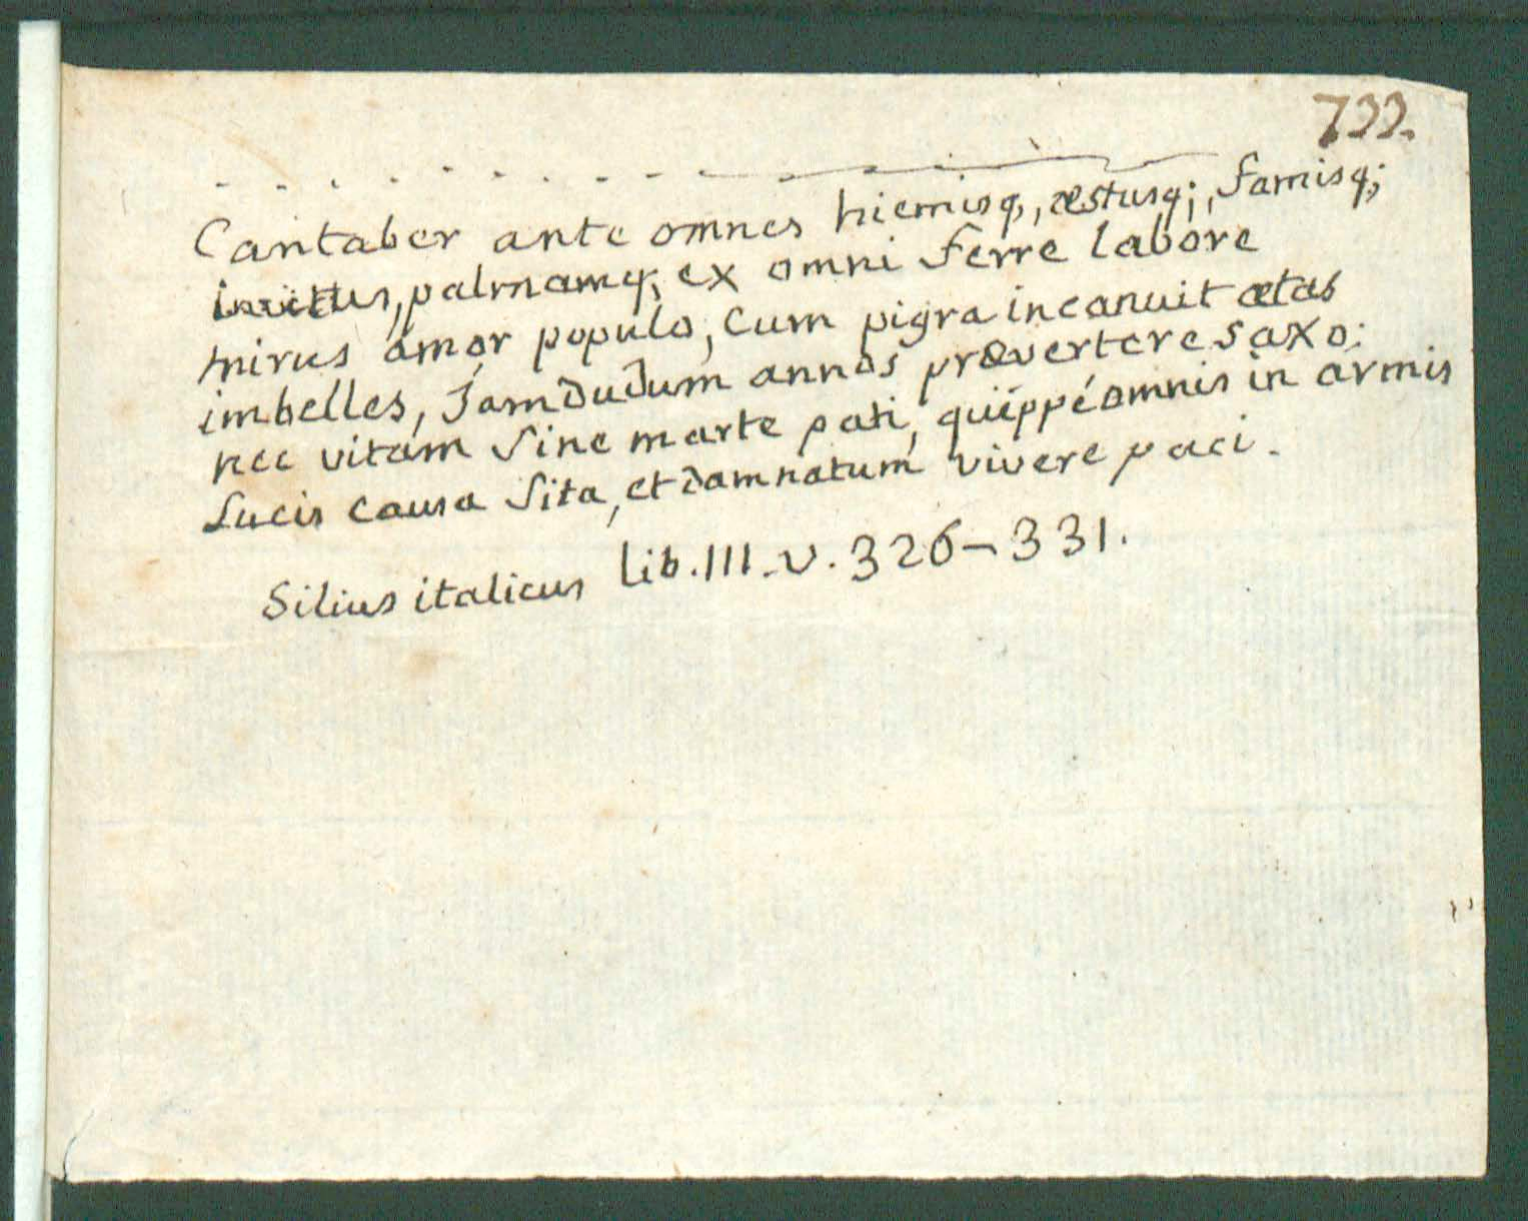 733.
Cantaber ante omnes hiemisq;, æstusq;, famisq;
invictus, palmamq; ex omni ferre labore
mirus amor populo, Cum pigra incanuit ætas
imbelles, Jamdudum annos prævertere saxo:
nec vitam sine marte pati, quippé omnis in armis
Lucis causa sita, et damnatum vivere paci.
Silius italicus lib. III. v. 326-331.